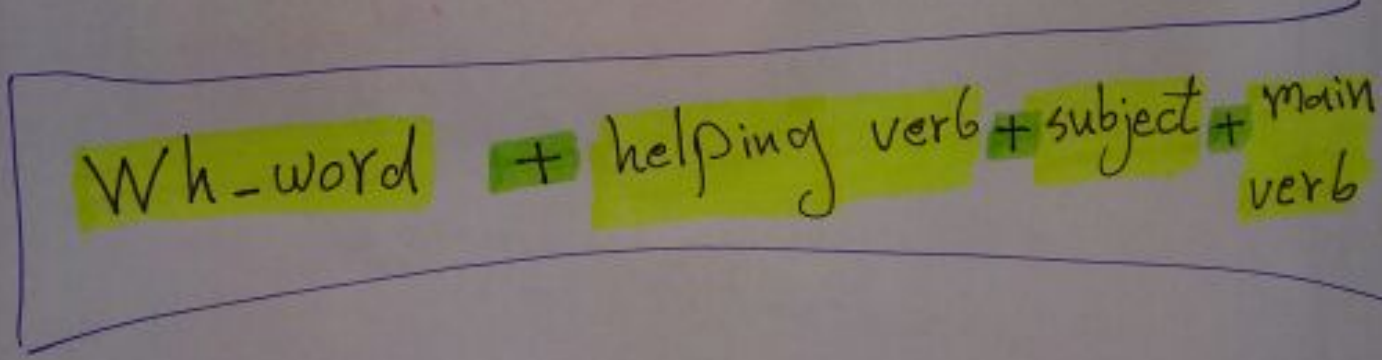 Wh_word + helping verb + subject + main
verb